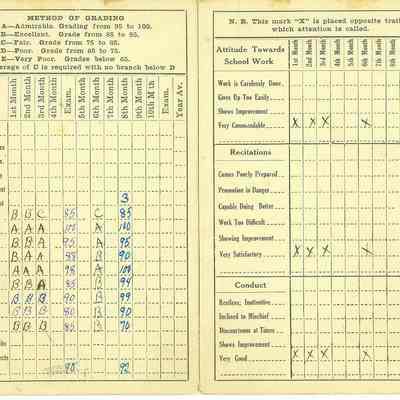 METHOD OF GRADING
A—Admirable. Grading from 95 to 100.
B—Excellent. Grade from 85 to 95.
C—Fair. Grade from 75 to 85.
D—Poor. Grade from 65 to 75.
E—Very Poor. Grades below 65.
erage of C is required with no branch below D
1st Month 2nd Month 3rd Month 4th Month Exam. 5th Month 6th Month 7th Month 8th Month 9th Month 10th M'th Exam. Year Av.
3
B B C 85 C 85
A A A 100 A 100
B B A 95 A 95
A A A 88 B 90
A A A 98 A 100
B B A 85 B 99
B B B 90 B 99
B B B 80 B 90
B B B 85 B 70
90 92
N. B. This mark "X" is placed opposite trait
which attention is called.
Attitude Towards School Work 1st Month 2nd Month 3rd Month 4th Month 5th Month 6th Month 7th Month 8th Month
Work is Carelessly Done
Gives Up Too Easily
Shows Improvement
Very Commendable X X X X
Recitations
Comes Poorly Prepared
Promotion in Danger
Capable Doing Better
Work Too Difficult
Showing Improvement
Very Satisfactory X X X X
Conduct
Restless; Inattentive
Inclined to Mischief
Discourteous at Times
Shows Improvement
Very Good X X X X